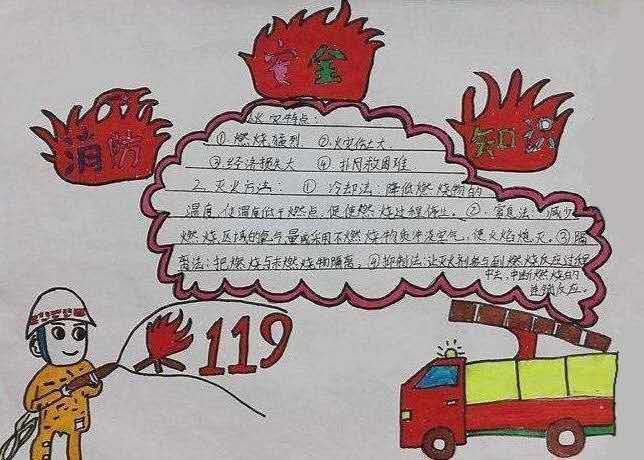 消防
安全
知识
火灾特点：
①燃烧猛烈 ②火灾伤亡大
③经济损失大 ④扑救困难
2. 灭火方法：① 冷却法：降低燃烧物的
温度，使温度低于燃点，促使燃烧过程停止。②窒息法：减少
燃烧区域的氧气量或采用不燃烧物质冲淡空气，使火焰熄灭。③隔
离法：把燃烧与未燃烧物隔离。④抑制法：让灭火剂参与到燃烧反应过程
中去，中断燃烧的
连锁反应。
119